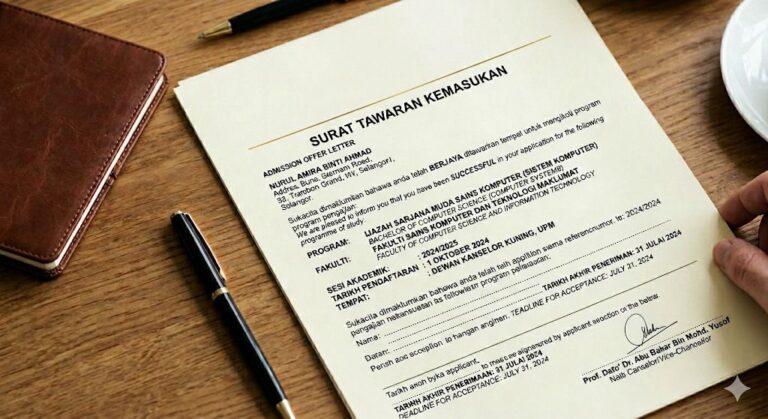 SURAT TAWARAN KEMASUKAN
ADMISSION OFFER LETTER
NURUL AMIRA BINTI AHMAD
Addres, Bune, Giemam Roed,
33, Trambon Grand, WV, Selangor,
Solangor.
Sukacita dimaklumkan bahawa anda telah BERJAYA ditawarkan tempat untuk mengikuti program
program pengajian:
We are pleased to inform you that you have been SUCCESSFUL in your application for the following
programme of study.
PROGRAM: IJAZAH SARJANA MUDA SAINS KOMPUTER (SISTEM KOMPUTER)
BACHELOR OF COMPUTER SCIENCE (COMPUTER SYSTEMS)
FAKULTI: FAKULTI SAINS KOMPUTER DAN TEKNOLOGI MAKLUMAT
FACULTY OF COMPUTER SCIENCE AND INFORMATION TECHNOLOGY
SESI AKADEMIK: : 2024/2025
TARIKH PENDAFTARAN : 1 OKTOBER 2024
TEMPAT: : DEWAN KANSELOR KUNING, UPM
Sukacita dimaklumkan bahawa anda telah to: 2024/2024
pengajian program
Name: TARIKH AKHIR PENERIMAN: 31 JULAI 2024
Datan:
acception to hangan DEADLINE FOR ACCEPTANCE: JULY 31, 2024
Tarikh by applicant or the below:
TARIKH AKHIR PENERIMAAN: 31 JULAI 2024
DEADLINE FOR ACCEPTANCE: JULY 31, 2024
Prof. Dato' Dr. Abu Bakar Bin Mohd. Yusof
Naib Canselor/Vice-Chancellor